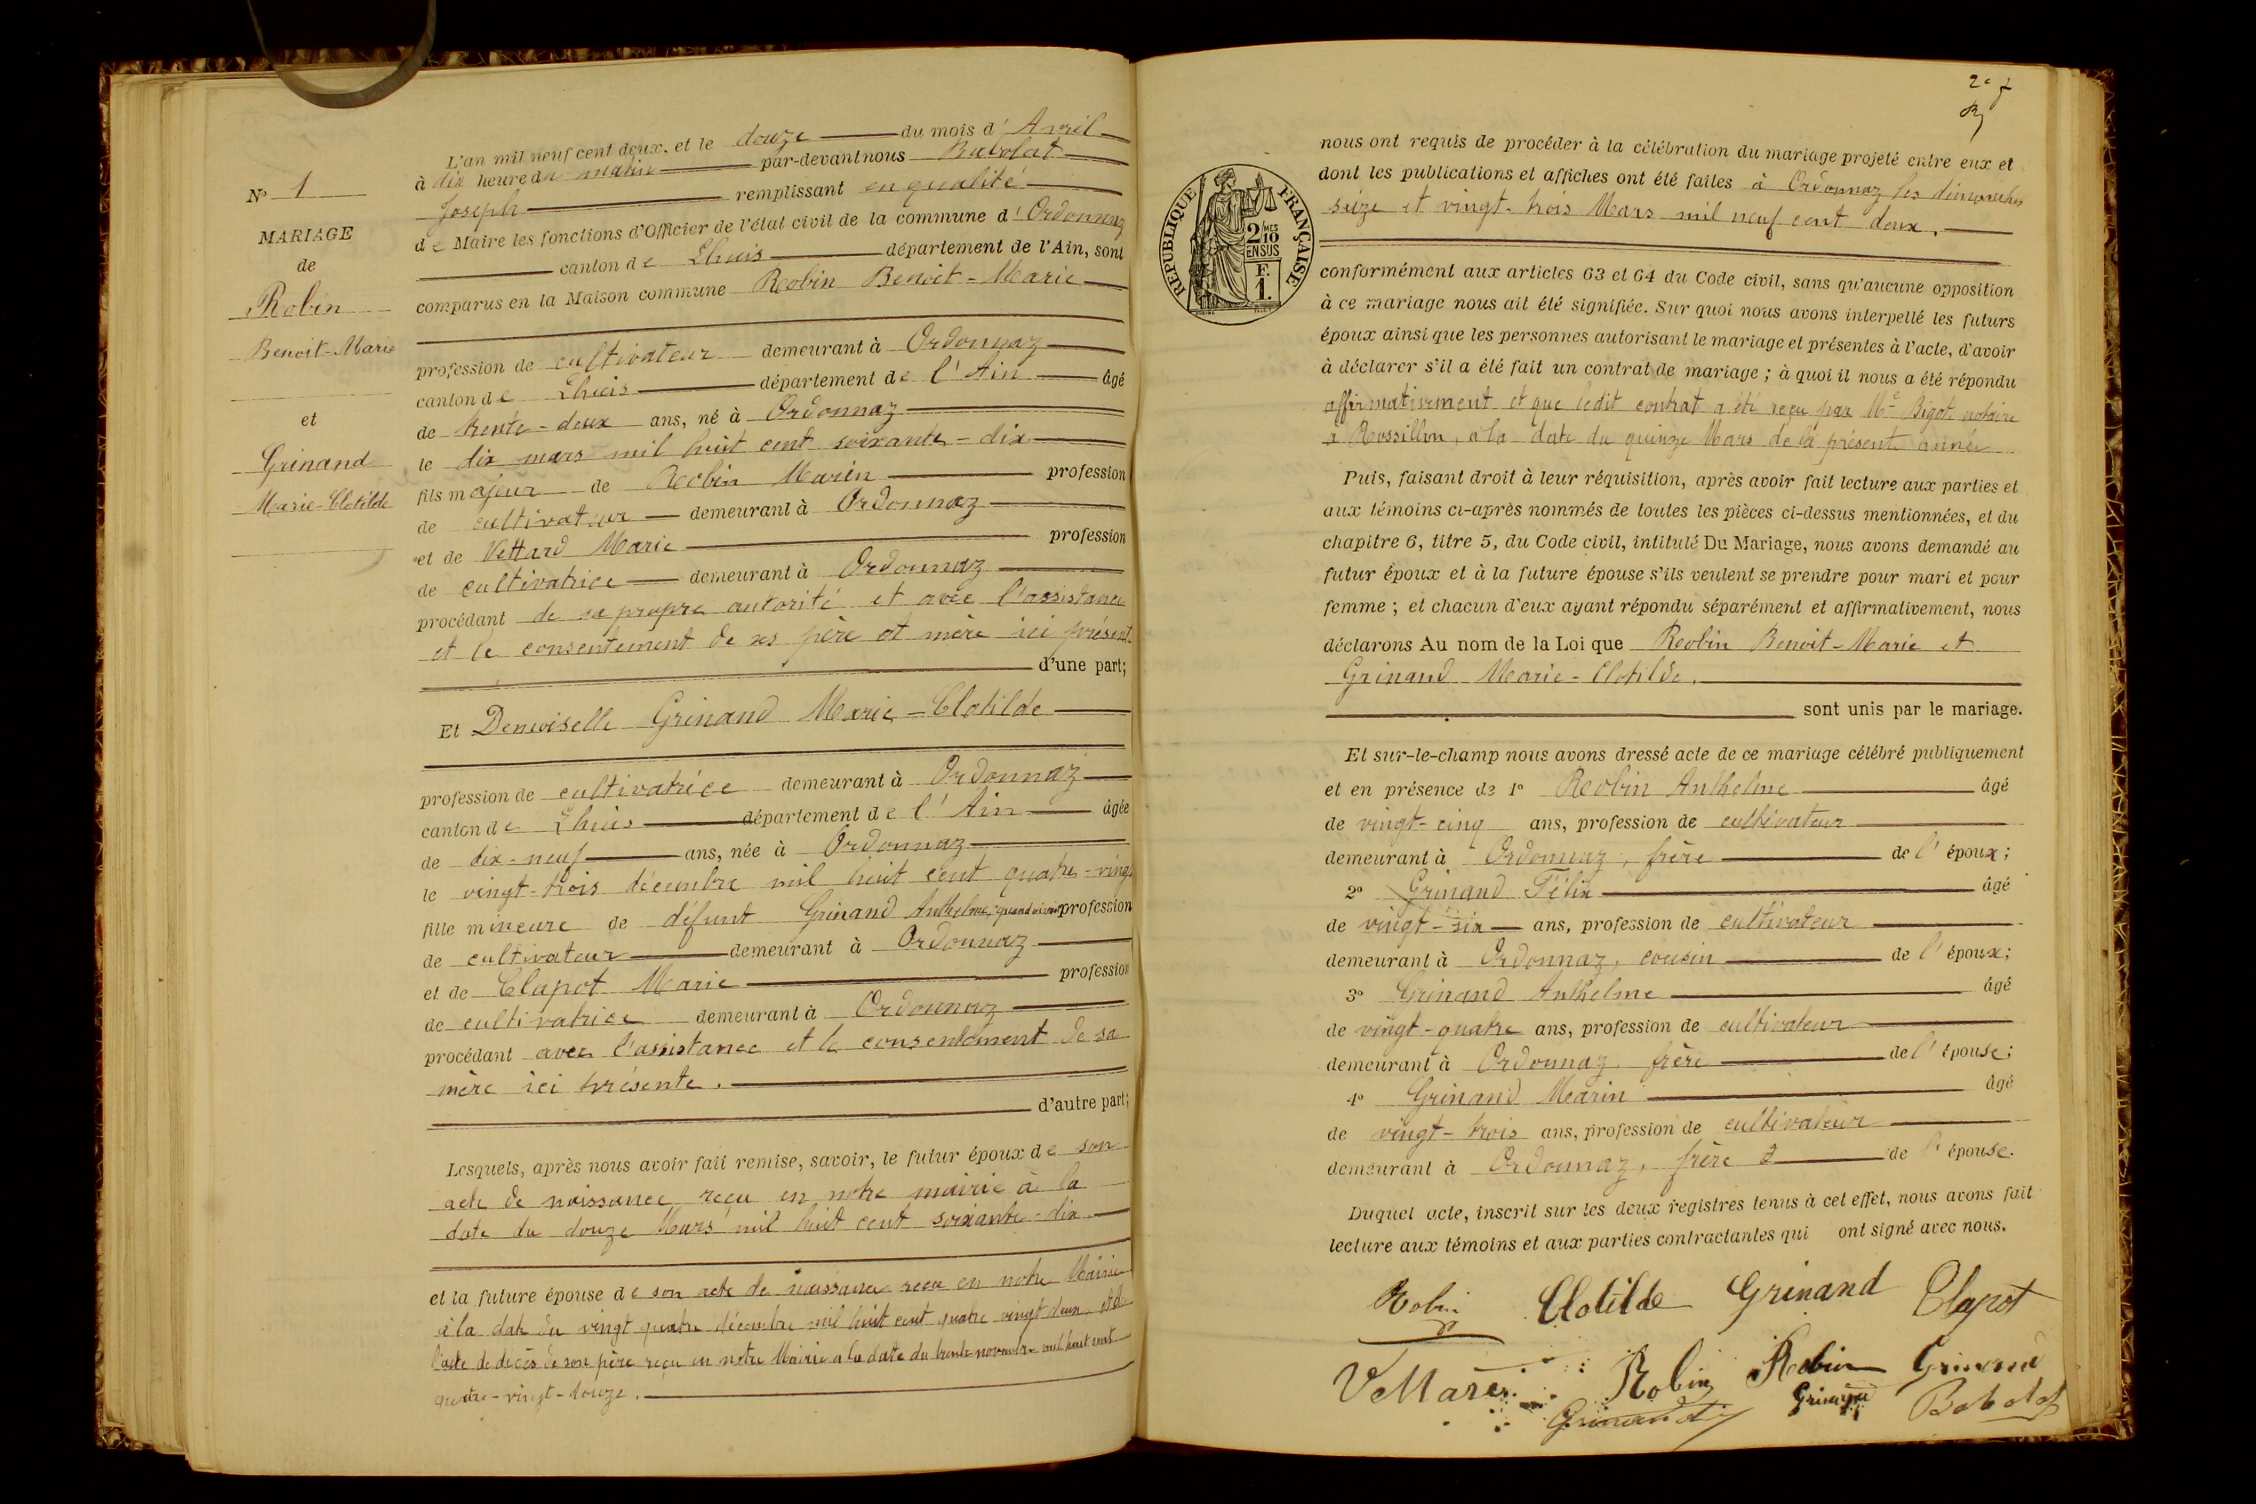 N° 1
MARIAGE
de
Robin
Benoit-Marie
et
Grinand
Marie-Clotilde
L'an mil neuf cent deux, et le douze du mois d'Avril
à dix heure du matin par-devant nous Babolat
Joseph remplissant en qualité
de Maire les fonctions d'Officier de l'état civil de la commune d'Ordonnaz
canton de Lhuis département de l'Ain, sont
comparus en la Maison commune Robin Benoit-Marie
profession de cultivateur demeurant à Ordonnaz
canton de Lhuis département de l'Ain âgé
de trente-deux ans, né à Ordonnaz
le dix mars mil huit cent soixante-dix
fils majeur de Robin Marin profession
de cultivateur demeurant à Ordonnaz
et de Vettard Marie profession
de cultivatrice demeurant à Ordonnaz
procédant de sa propre autorité et avec l'assistance
et le consentement de ses père et mère ici présents
d'une part;
Et Demoiselle Grinand Marie-Clotilde
profession de cultivatrice demeurant à Ordonnaz
canton de Lhuis département de l'Ain âgée
de dix-neuf ans, née à Ordonnaz
le vingt-trois décembre mil huit cent quatre-vingt
fille mineure de défunt Grinand Anthelme, quand vivant profession
de cultivateur demeurant à Ordonnaz
et de Clapot Marie profession
de cultivatrice demeurant à Ordonnaz
procédant avec l'assistance et le consentement de sa
mère ici présente.
d'autre part;
Lesquels, après nous avoir fait remise, savoir, le futur époux de son
acte de naissance reçu en notre mairie à la
date du douze Mars mil huit cent soixante-dix
et la future épouse de son acte de naissance reçu en notre Mairie
à la date du vingt quatre décembre mil huit cent quatre vingt deux et de
l'acte de décès de son père reçu en notre Mairie a la date du trente novembre mil huit cent
quatre-vingt-douze.
nous ont requis de procéder à la célébration du mariage projeté entre eux et
dont les publications et affiches ont été faites à Ordonnaz les dimanches
seize et vingt-trois Mars mil neuf cent deux.
RÉPUBLIQUE FRANÇAISE
2/10
MES
EN SUS
F.
1.
conformément aux articles 63 et 64 du Code civil, sans qu'aucune opposition
à ce mariage nous ait été signifiée. Sur quoi nous avons interpellé les futurs
époux ainsi que les personnes autorisant le mariage et présentes à l'acte, d'avoir
à déclarer s'il a été fait un contrat de mariage ; à quoi il nous a été répondu
affirmativement et que ledit contrat a été reçu par Me Bigot notaire
à Rossillon, a la date du quinze Mars de la présent année
Puis, faisant droit à leur réquisition, après avoir fait lecture aux parties et
aux témoins ci-après nommés de toutes les pièces ci-dessus mentionnées, et du
chapitre 6, titre 5, du Code civil, intitulé Du Mariage, nous avons demandé au
futur époux et à la future épouse s'ils veulent se prendre pour mari et pour
femme ; et chacun d'eux ayant répondu séparément et affirmativement, nous
déclarons Au nom de la Loi que Robin Benoit-Marie et
Grinand Marie-Clotilde.
sont unis par le mariage.
Et sur-le-champ nous avons dressé acte de ce mariage célébré publiquement
et en présence de 1° Robin Anthelme âgé
de vingt-cinq ans, profession de cultivateur
demeurant à Ordonnaz, frère de l'époux;
2° Grinand Félix âgé
de vingt-six ans, profession de cultivateur
demeurant à Ordonnaz, cousin de l'époux;
3° Grinand Anthelme âgé
de vingt-quatre ans, profession de cultivateur
demeurant à Ordonnaz frère de l'épouse;
4° Grinand Marin âgé
de vingt-trois ans, profession de cultivateur
demeurant à Ordonnaz, frère de l'épouse.
Duquel acte, inscrit sur les deux registres tenus à cet effet, nous avons fait
lecture aux témoins et aux parties contractantes qui ont signé avec nous.
Robin Clotilde Grinand Clapot
Vettard Robin Robin Grinand
Grinand Grinand Babolat